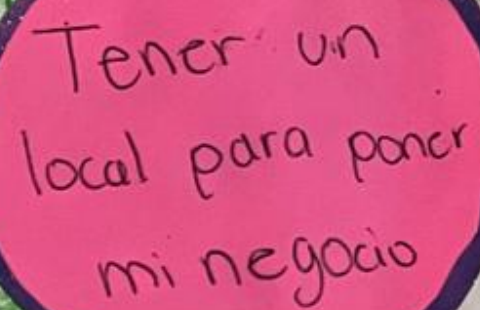 Tener un
local para poner
mi negocio